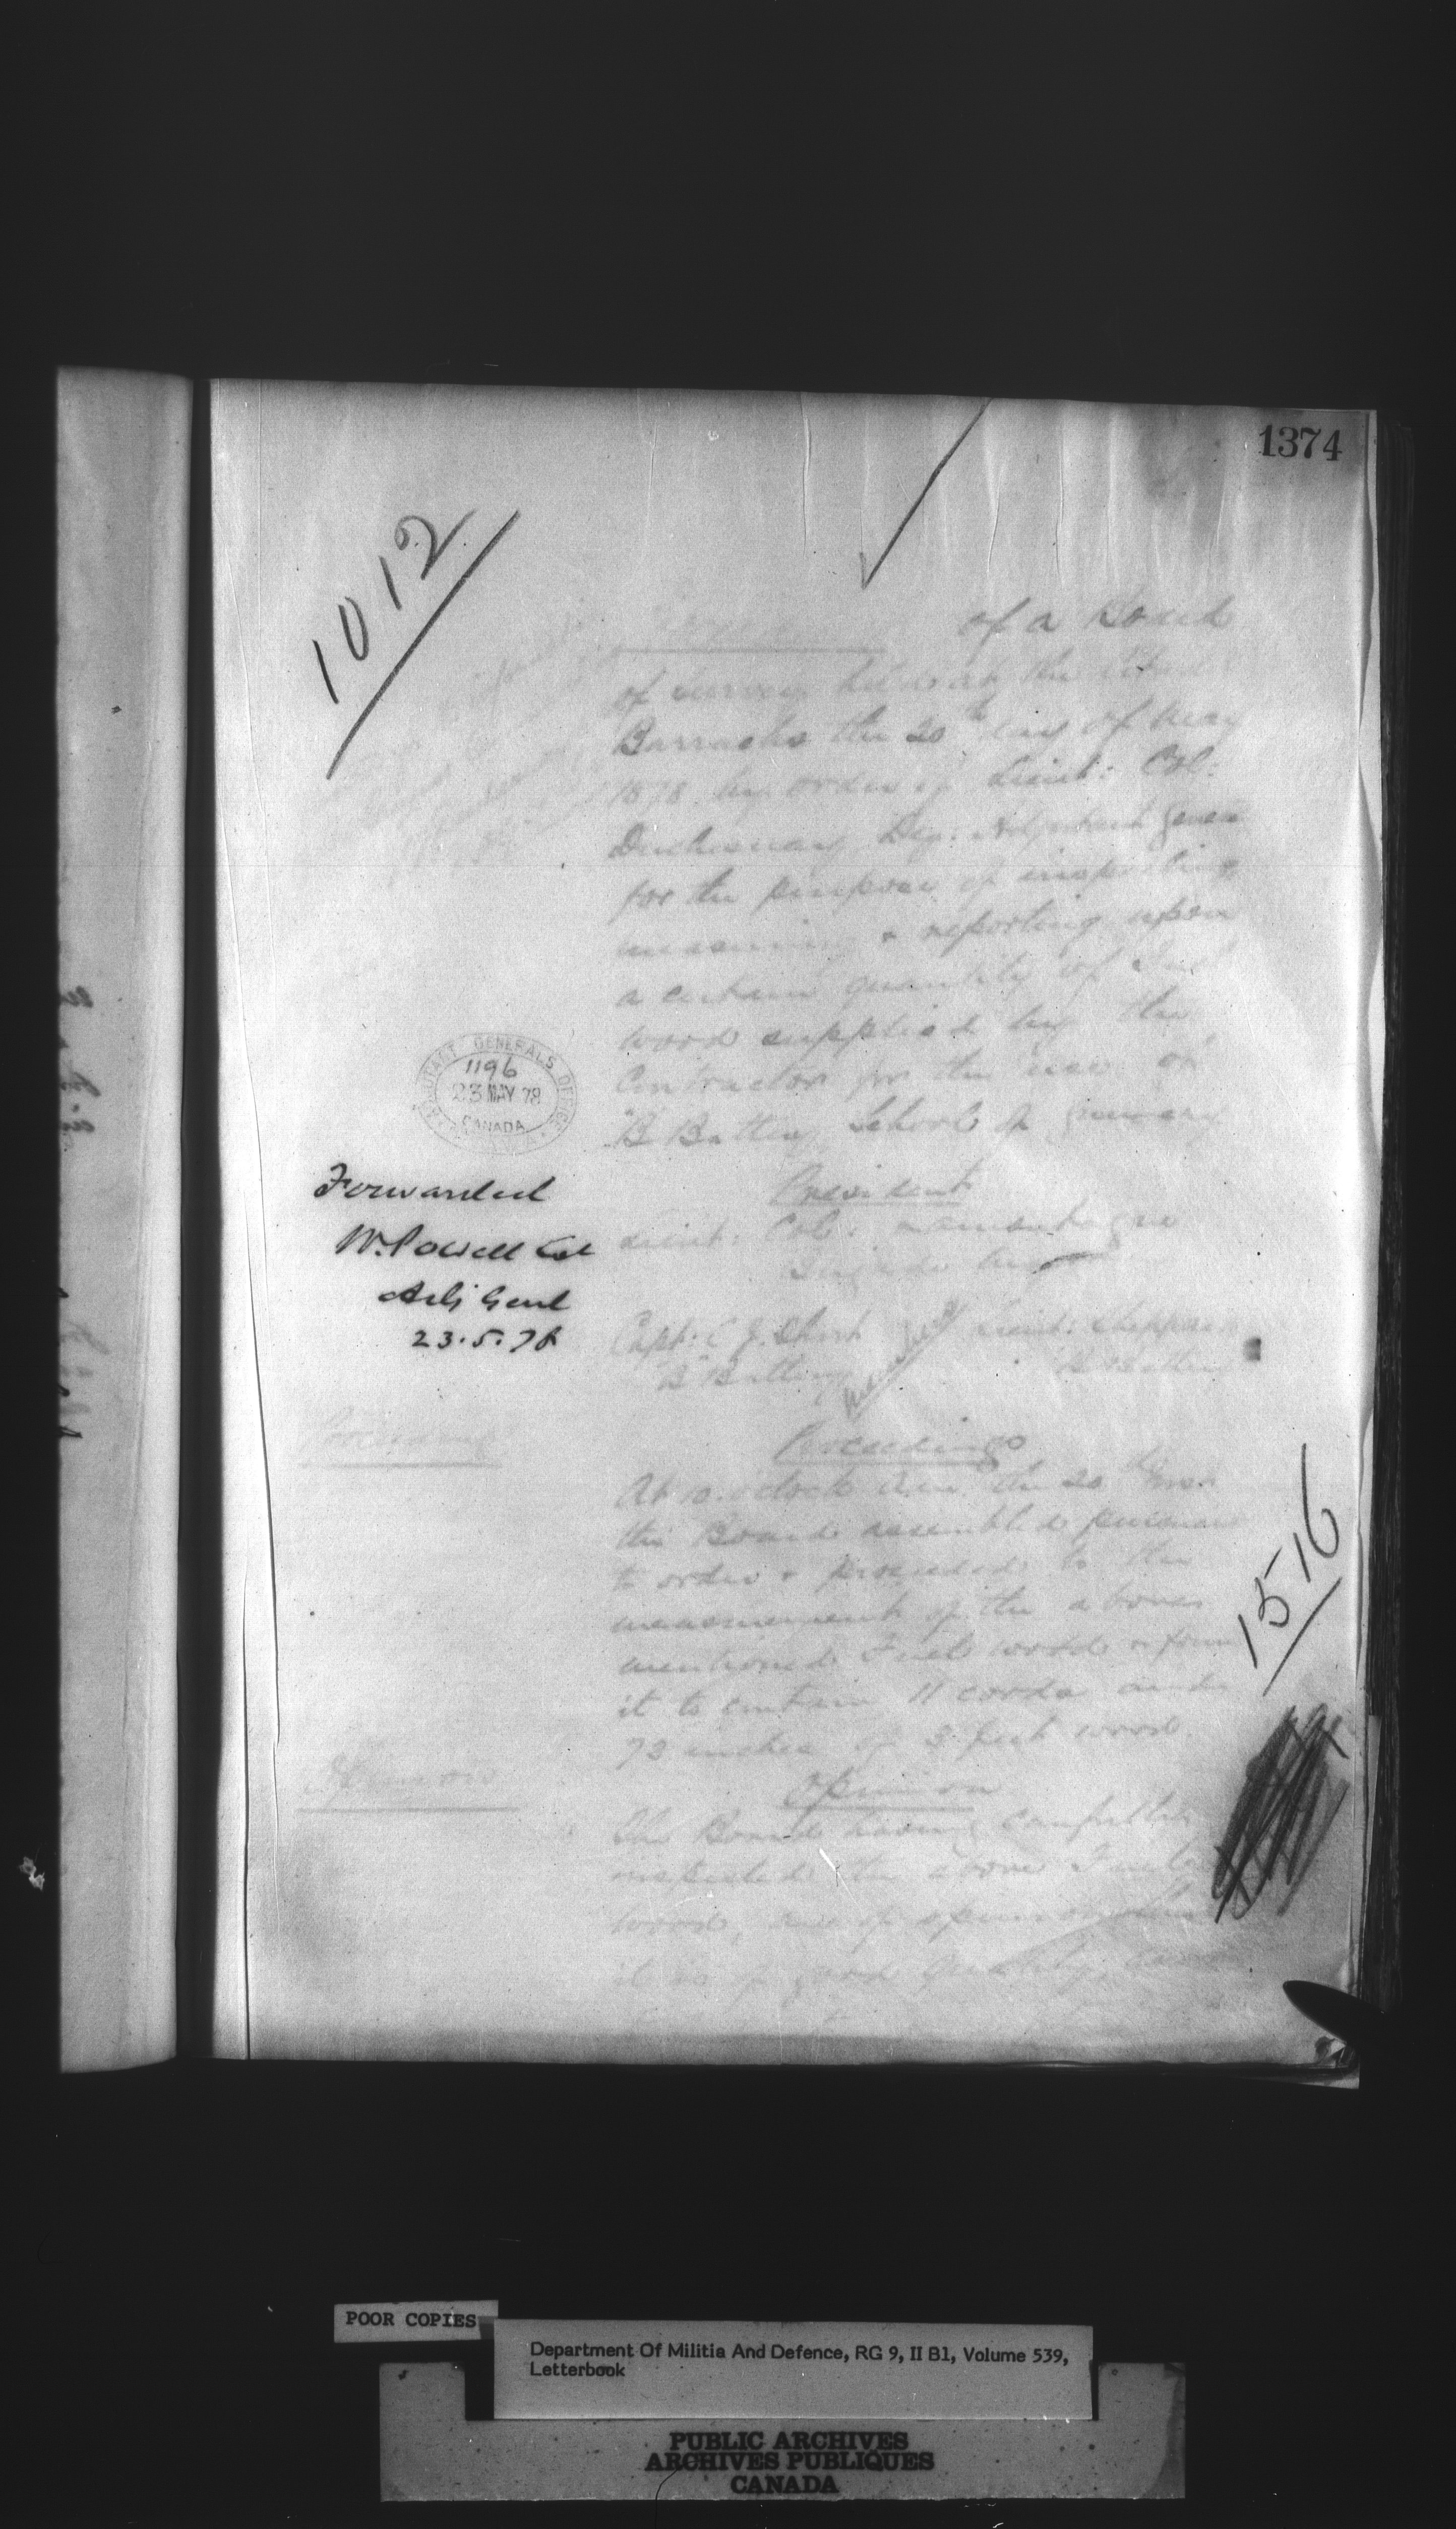 1374
1012
of a Board
of Survey held at the
Barracks the 20th day of May
1878 by order of Lieut: Col:
Duchesnay, Dep: Adjutant General
for the purpose of inspecting
measuring & reporting upon
a certain quantity of Fuel
wood supplied by the
Contractor for the use of
"B" Battery School of Gunnery
ADJUTANT GENERALS OFFICE
1196
23 MAY 78
CANADA
Forwarded
W. Powell Col
Adj Genl
23.5.78
President
Lieut: Col: Lamontagne
Brigade
Members
Capt: C J. Short Lieut: Sheppard
"B" Battery "B" Battery
Proceedings
Proceedings
At 10 o'clock A.M. the 20th Inst.
the Board assembled pursuant
to order & proceeded to the
measurement of the above
mentioned Fuel wood & found
it to contain 11 cords and
73 inches of 3 feet wood.
1516
Opinion
Opinion
The Board having carefully
inspected the above Fuel
wood, are of opinion that
it is of good quality, and
POOR COPIES
Department Of Militia And Defence, RG 9, II B1, Volume 539,
Letterbook
PUBLIC ARCHIVES
ARCHIVES PUBLIQUES
CANADA